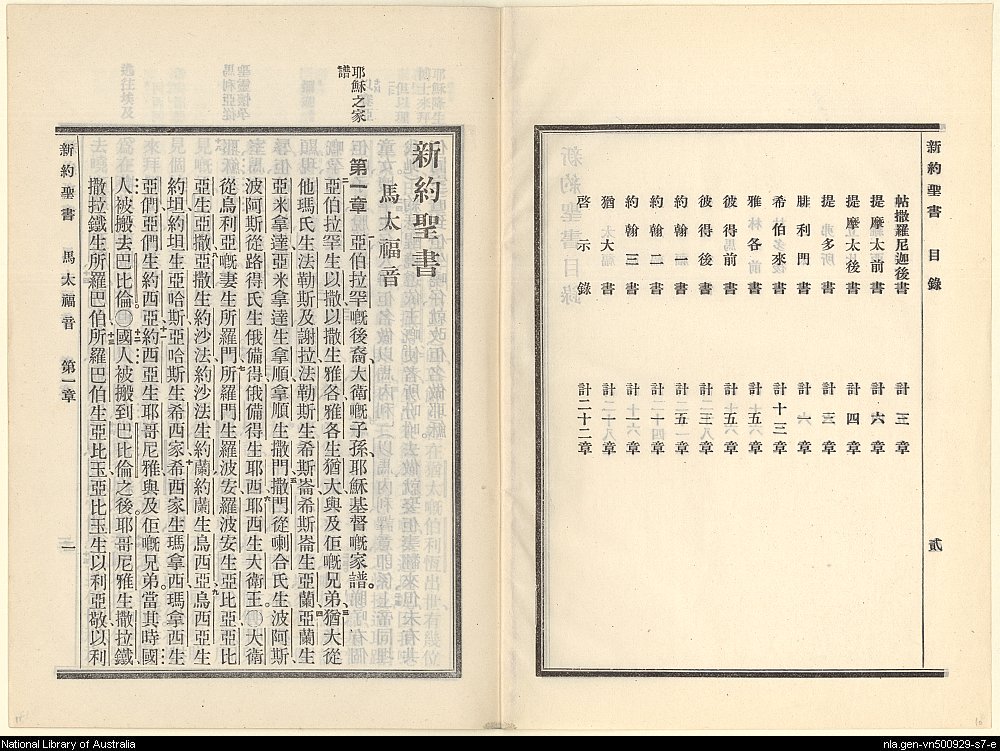 新約聖書 目錄
帖撒羅尼迦後書 計三章
提摩太前書 計六章
提摩太後書 計四章
提多書 計三章
腓利門書 計一章
希伯來書 計十三章
雅各書 計五章
彼得前書 計五章
彼得後書 計三章
約翰一書 計五章
約翰二書 計一章
約翰三書 計一章
猶大書 計一章
啓示錄 計二十二章
貳
新約聖書
馬太福音
耶穌之家
譜
第一章 亞伯拉罕嘅後裔、大衛嘅子孫、耶穌基督嘅家譜。
亞伯拉罕生以撒、以撒生雅各、雅各生猶大與及佢嘅兄弟、猶大從
他瑪氏生法勒斯及謝拉、法勒斯生希斯崙、希斯崙生亞蘭、亞蘭生
亞米拿達、亞米拿達生拿順、拿順生撒門、撒門從喇合氏生波阿斯、
波阿斯從路得氏生俄備得、俄備得生耶西、耶西生大衛王。大衛
從烏利亞嘅妻生所羅門、所羅門生羅波安、羅波安生亞比亞、亞比
亞生亞撒、亞撒生約沙法、約沙法生約蘭、約蘭生烏西亞、烏西亞生
約坦、約坦生亞哈斯、亞哈斯生希西家、希西家生瑪拿西、瑪拿西生
亞們、亞們生約西亞、約西亞生耶哥尼雅與及佢嘅兄弟、當其時國
人被搬去巴比倫。國人被搬到巴比倫之後、耶哥尼雅生撒拉鐵、
撒拉鐵生所羅巴伯、所羅巴伯生亞比玉、亞比玉生以利亞敬、以利
新約聖書 馬太福音 第一章 一
National Library of Australia
nla.gen-vn500929-s7-e